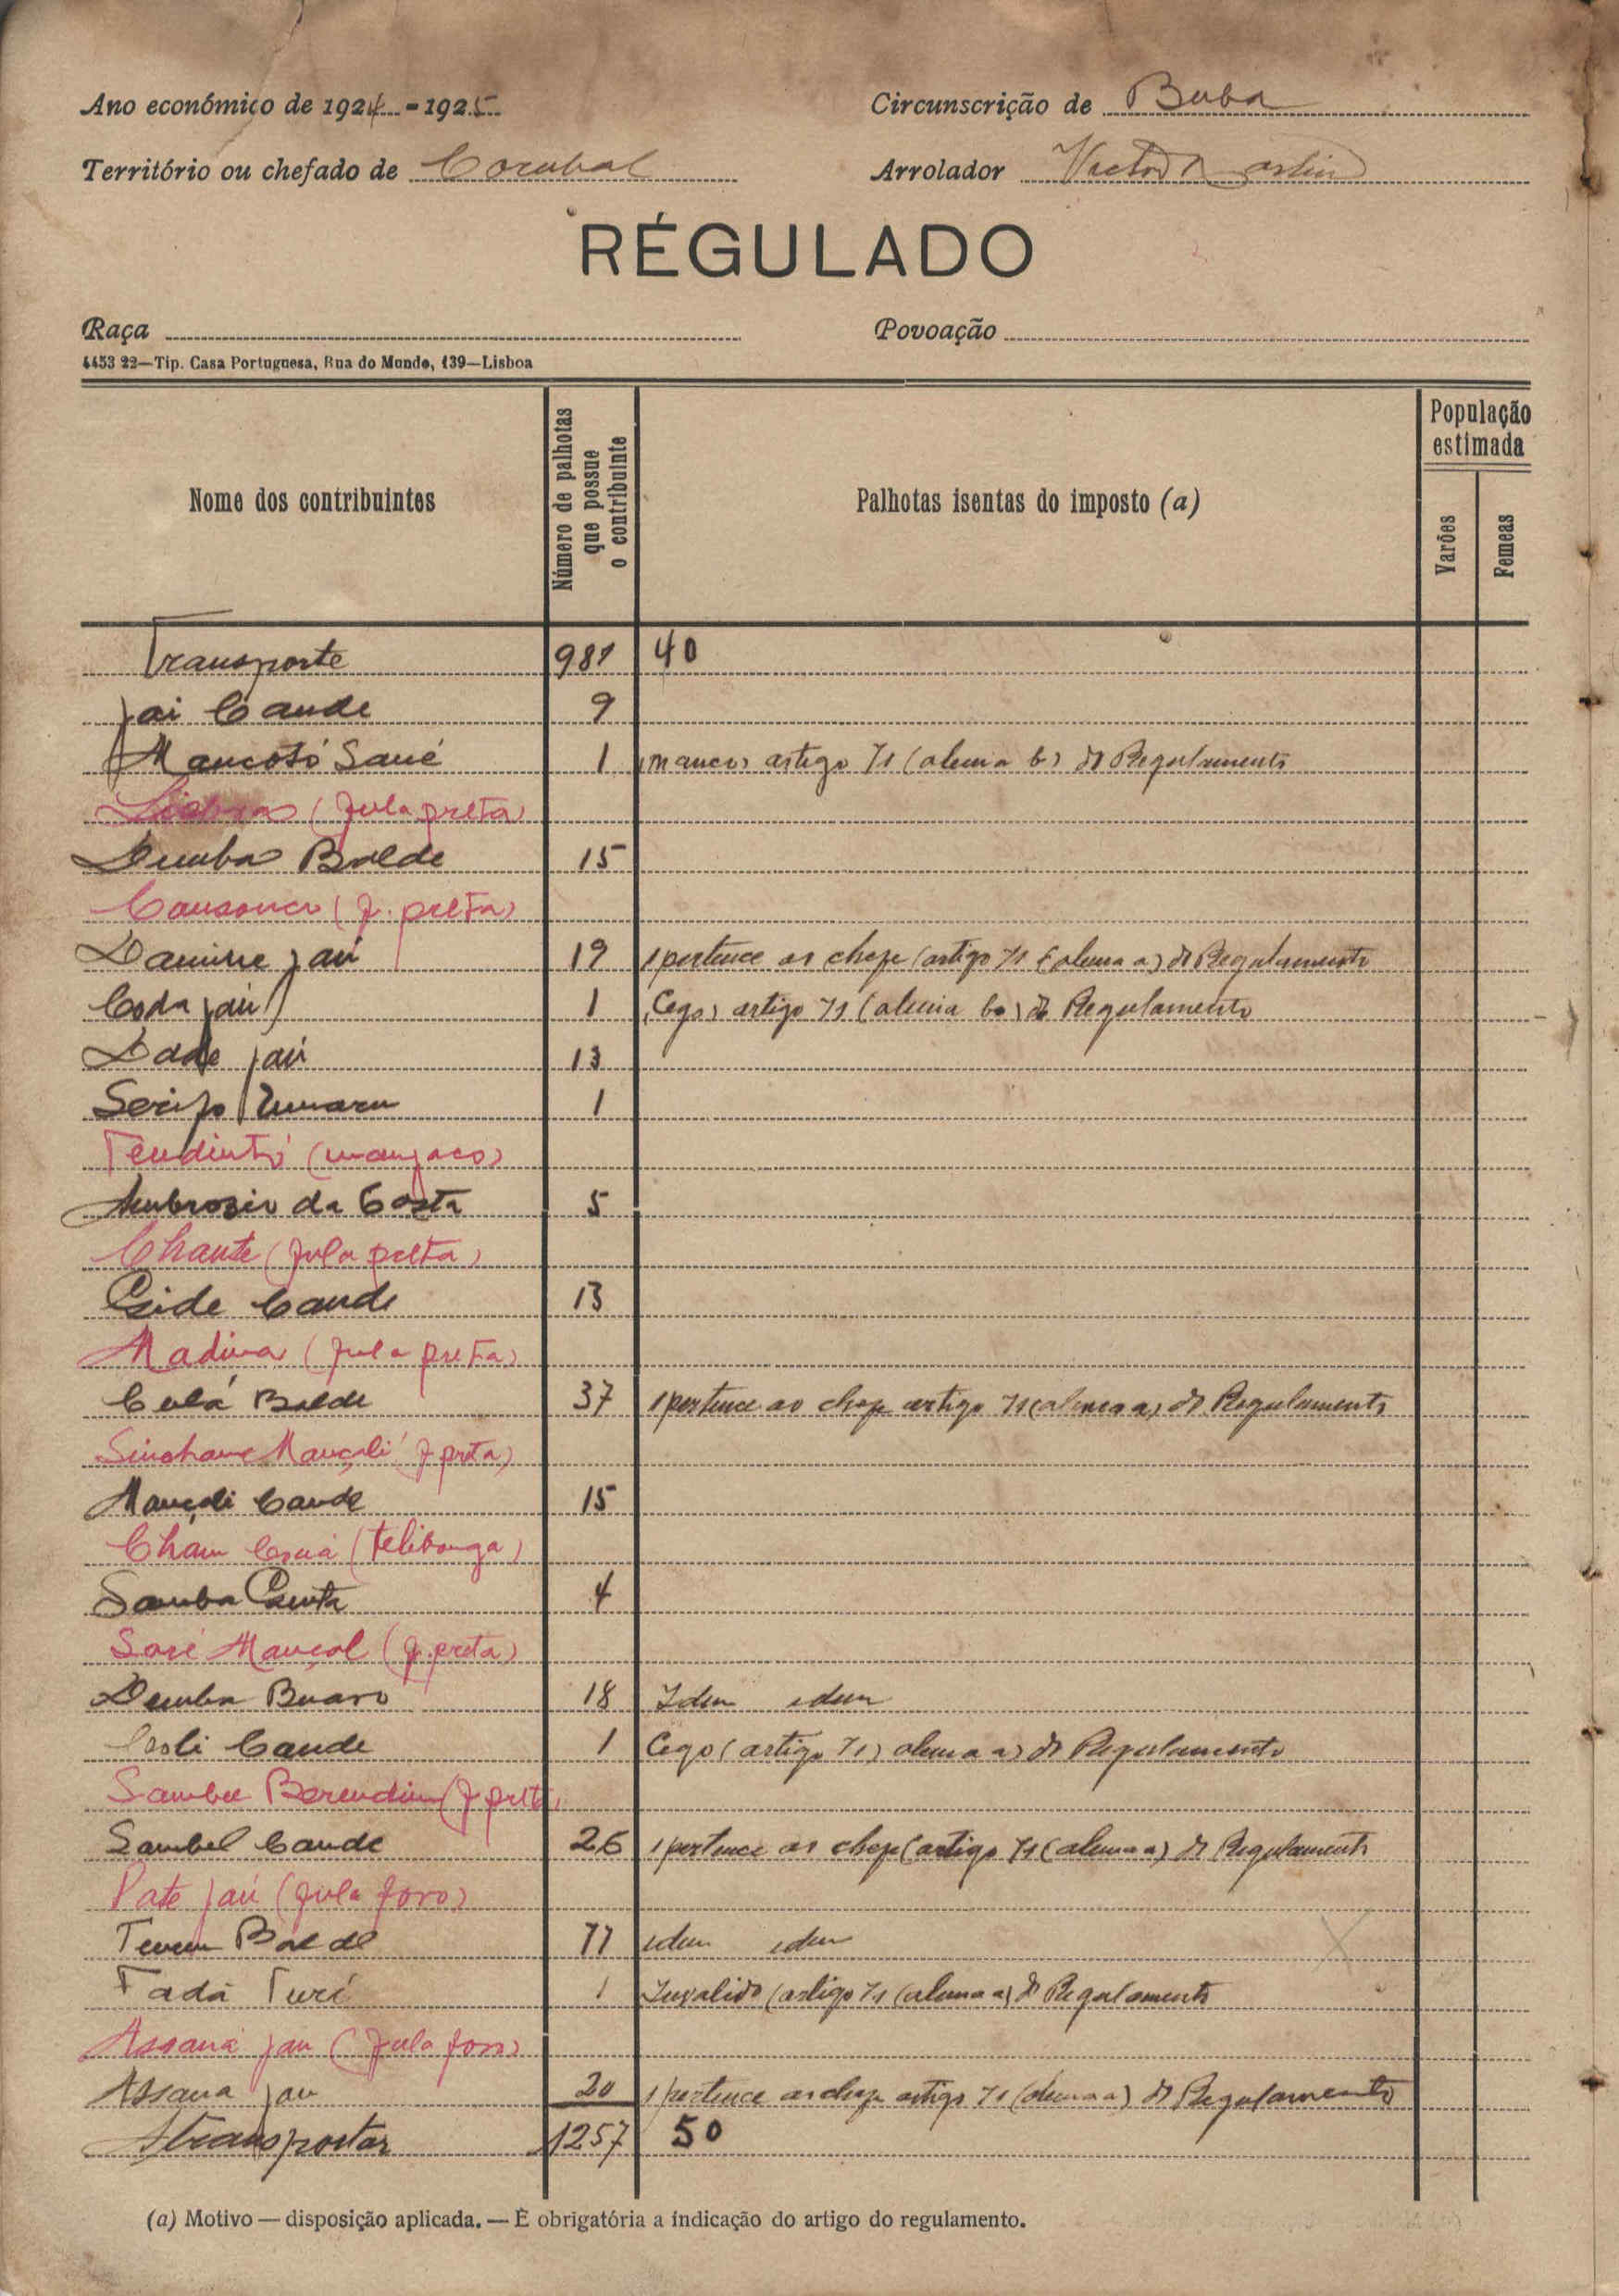 Ano económico de 1924 - 1925
Circunscrição de Buba
Território ou chefado de Corubal
Arrolador Victor Martins
RÉGULADO
Raça
Povoação
4453 22—Tip. Casa Portuguesa, Rua do Mundo, 139—Lisboa
Nome dos contribuintes
Número de palhotas que possue o contribuinte
Palhotas isentas do imposto (a)
População estimada
Varões
Femeas
Transporte 981 40
Jai Cande 9
Mancotó Sané 1 (manco) artigo 71 (alenia b) do Regulamento
(fula preta)
Demba Balde 15
(f. preta)
Jaú 19 1 pertence ao chefe (artigo 71 (alenea a) do Regulamento
Coda Jaú 1 (Cego) artigo 71 (alenia b) do Regulamento
Dade Jaú 13
Serifo Umaru 1
Tendintó (manjaco)
Ambrozio da Costa 5
Chante (fula preta)
Cande 13
Madina (fula preta)
Culá Balde 37 1 pertence ao chefe artigo 71 (alenea a) do Regulamento
Sincham Mançali (f preta)
Mançali Cande 15
Cham (telibonga)
Samba 4
Saré Mançal (f. preta)
Demba Buaro 18 Idem idem
Coli Cande 1 Cego (artigo 71) alenea a) do Regulamento
Sambel Berendim (f preta)
Sambel Cande 26 1 pertence ao chefe (artigo 71 (alenea a) do Regulamento
Pate Jaú (fula foro)
Balde 77 idem idem
Fadá Turé 1 Invalido (artigo 71 (alenea a) do Regulamento
Assaná Jau (fula foro)
Assana Jau 20 1 pertence ao chefe artigo 71 (alenea a) do Regulamento
A transportar 1257 50
(a) Motivo — disposição aplicada. — É obrigatória a indicação do artigo do regulamento.